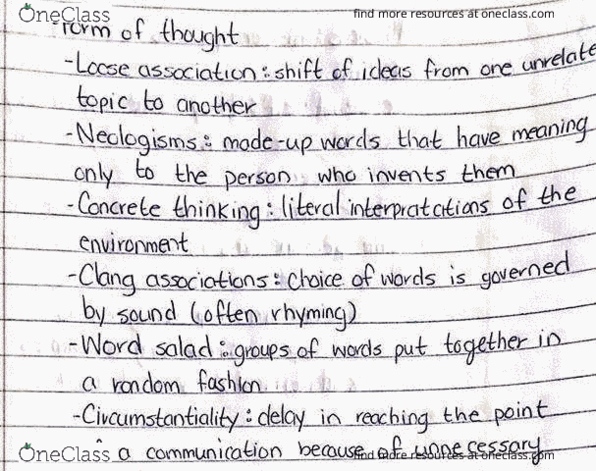 OneClass
find more resources at oneclass.com
form of thought
-Loose association: shift of ideas from one unrelate
topic to another
-Neologisms: made-up words that have meaning
only to the person who invents them
-Concrete thinking: literal interpratations of the
environment
-Clang associations: choice of words is governed
by sound (often rhyming)
-Word salad: groups of words put together in
a random fashion
-Circumstantiality: delay in reaching the point
a communication because of unnecessary
OneClass
find more resources at oneclass.com